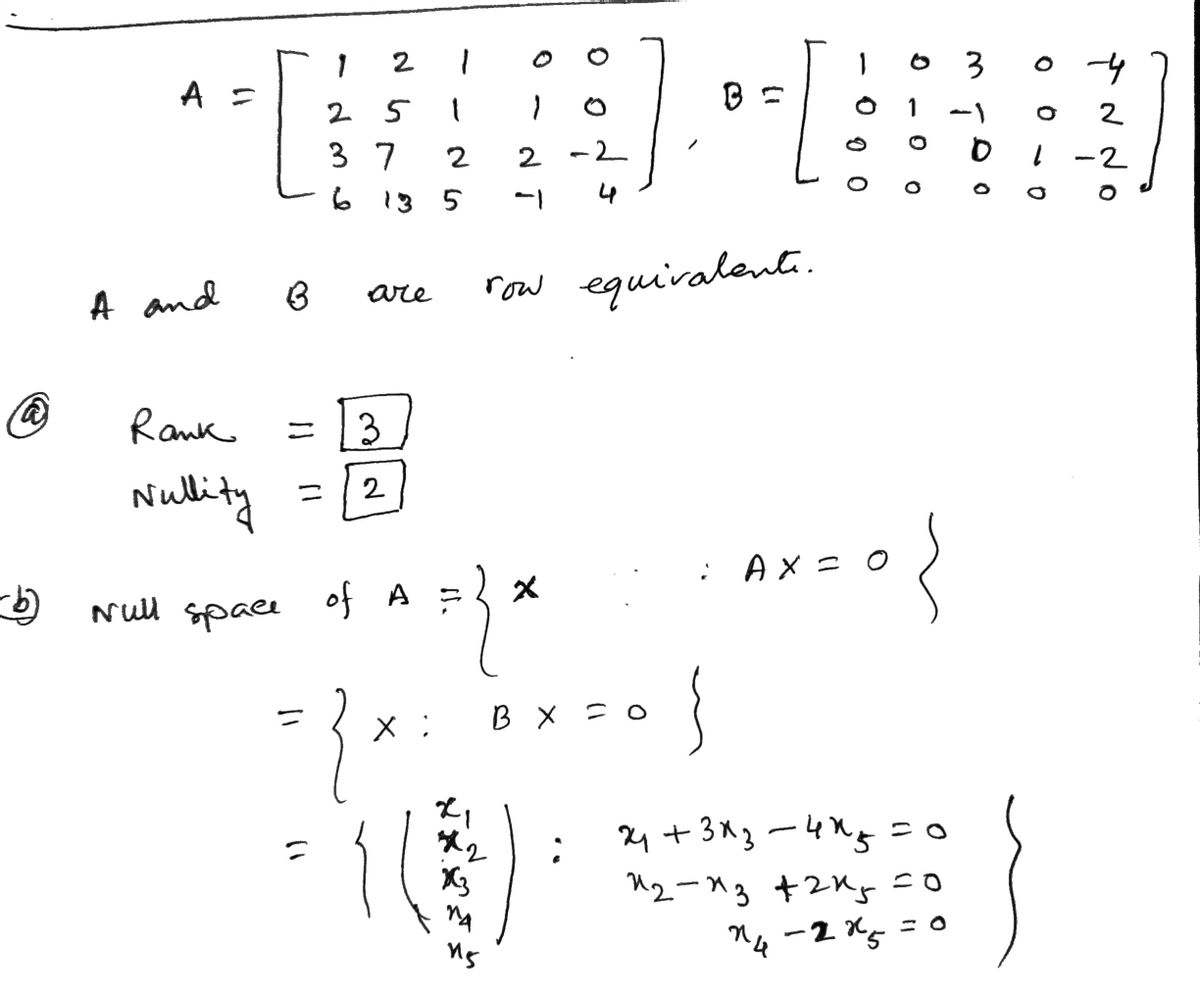 A = [ 1 2 1 0 0 ] , B = [ 1 0 3 0 -4 ]
[ 2 5 1 1 0 ] [ 0 1 -1 0 2 ]
[ 3 7 2 2 -2 ] [ 0 0 0 1 -2 ]
[ 6 13 5 -1 4 ] [ 0 0 0 0 0 ]
A and B are row equivalent.
(a) Rank = 3
Nullity = 2
(b) Null space of A = { x : A X = 0 }
= { X : B X = 0 }
= { ( x₁ x₂ x₃ x₄ x₅ ) : x₁ + 3x₃ - 4x₅ = 0
x₂ - x₃ + 2x₅ = 0
x₄ - 2x₅ = 0 }